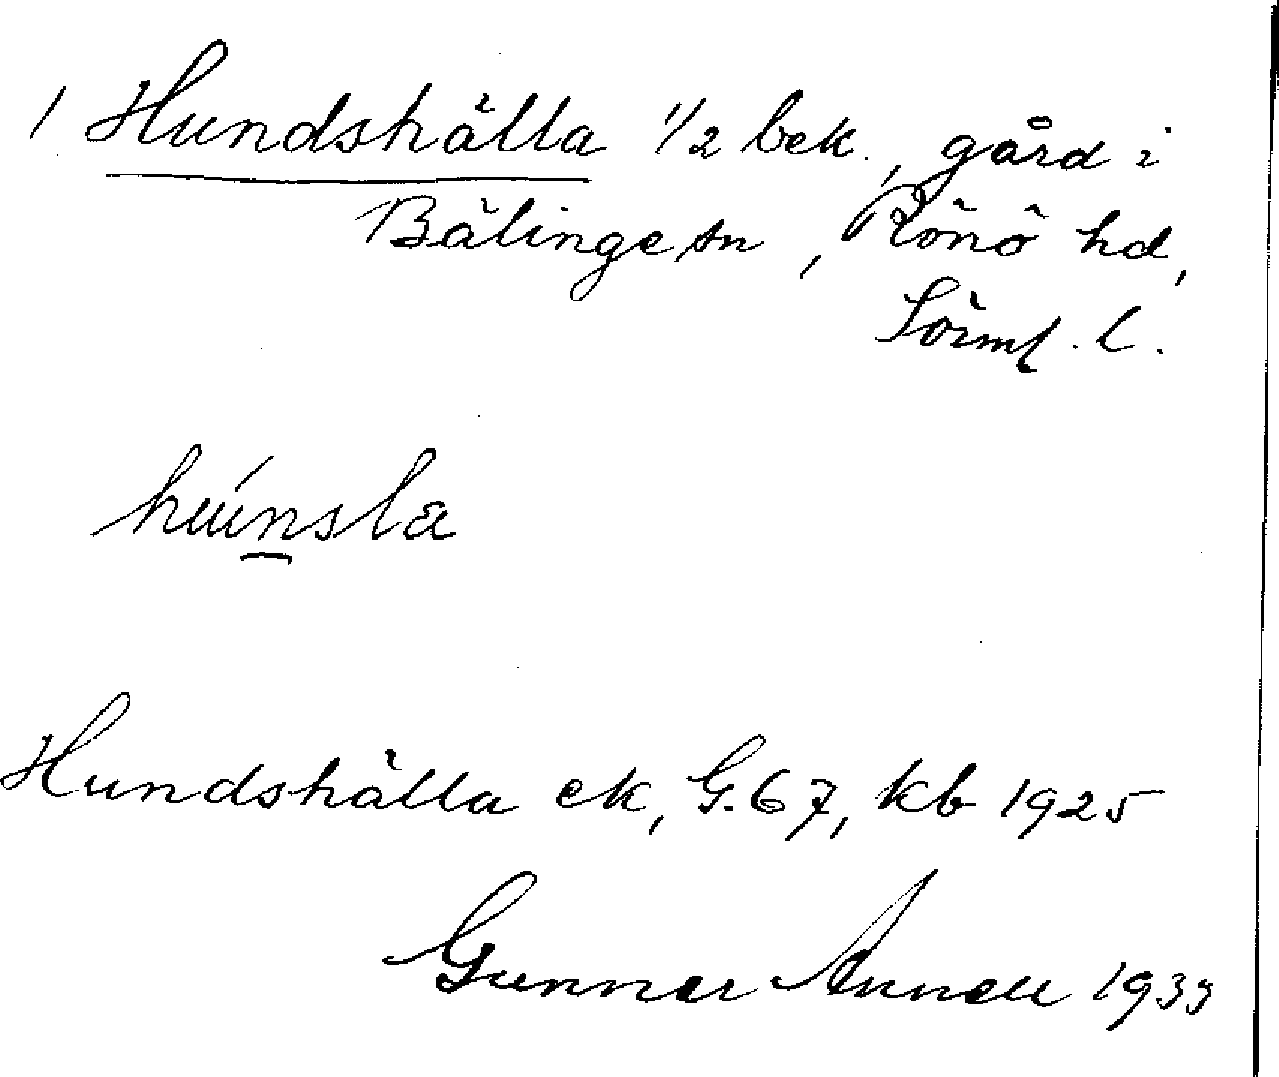 1 Hundshälla 1/2 bek., gård i
Bälinge sn, Rönö hd,
Sörml. l.
huńsla
Hundshälla ek, G. 67, kb 1925
Gunnar Annell 1933